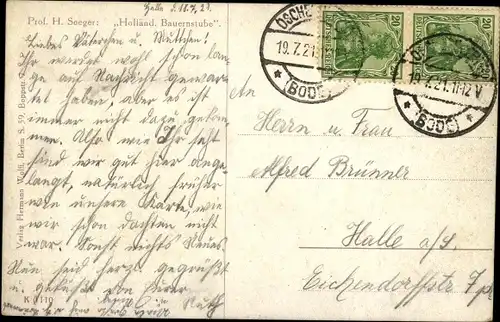 Prof. H. Seeger: „Holland. Bauernstube“.
Halle d. 18.7.21
Liebes Väterchen u. Muttchen!
Ihr werdet wohl schon lange
auf Nachricht gewartet
haben, aber es ist
immer nicht dazu gekommen.
Also wie Ihr seht
sind wir gut hier angelangt,
natürlich früher
wie unsere Karte, wie
wir schon dachten nicht
war. Sonst nichts Neues
Nun seid herzl. gegrüßt
u. geküßt von Eurer
Ruth
Verlag Hermann Wolff, Berlin S. 59, Boppstr.
K 1110
19.7.21
(BODE)
19.7.21.11-12V
(BODE)
20
20
Herrn u. Frau
Alfred Brünner
Halle a/S
Eichendorffstr. 7